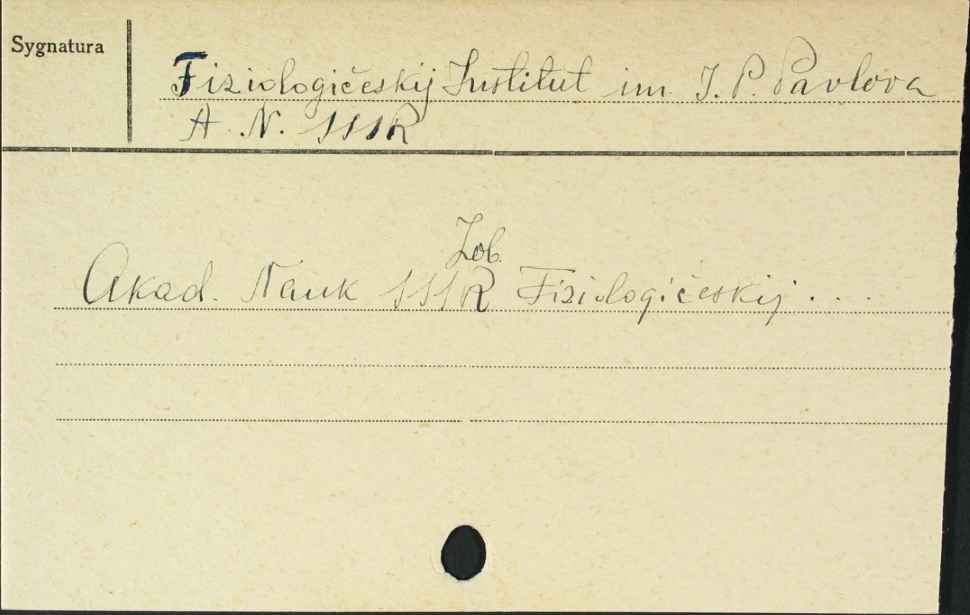 Sygnatura
Fiziologičeskij Institut im I. P. Pavlova
A. N. SSSR
Zob.
Akad. Nauk SSSR Fiziologičeskij . . .